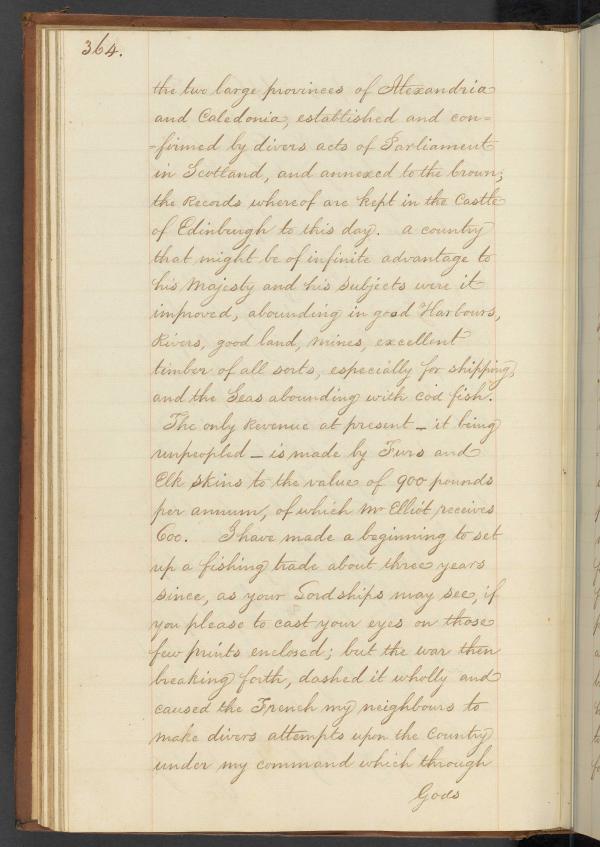 364.
the two large provinces of Alexandria
and Caledonia, established and con=
=firmed by divers acts of Parliament
in Scotland, and annexed to the Crown;
the Records whereof are kept in the Castle
of Edinburgh to this day. a country
that might be of infinite advantage to
his Majesty and his subjects were it
improved, abounding in good Harbours,
Rivers, good land, mines, excellent
timber of all sorts, especially for shipping,
and the Seas abounding with cod fish.
The only Revenue at present _ it being
unpeopled _ is made by Furs and
Elk skins to the value of 900 pounds
per annum, of which Mr Elliot receives
600. I have made a beginning to set
up a fishing trade about three years
since, as your Lordships may see, if
you please to cast your eyes on those
few prints enclosed; but the war then
breaking forth, dashed it wholly and
caused the French my neighbours to
make divers attempts upon the Country
under my command which through
Gods